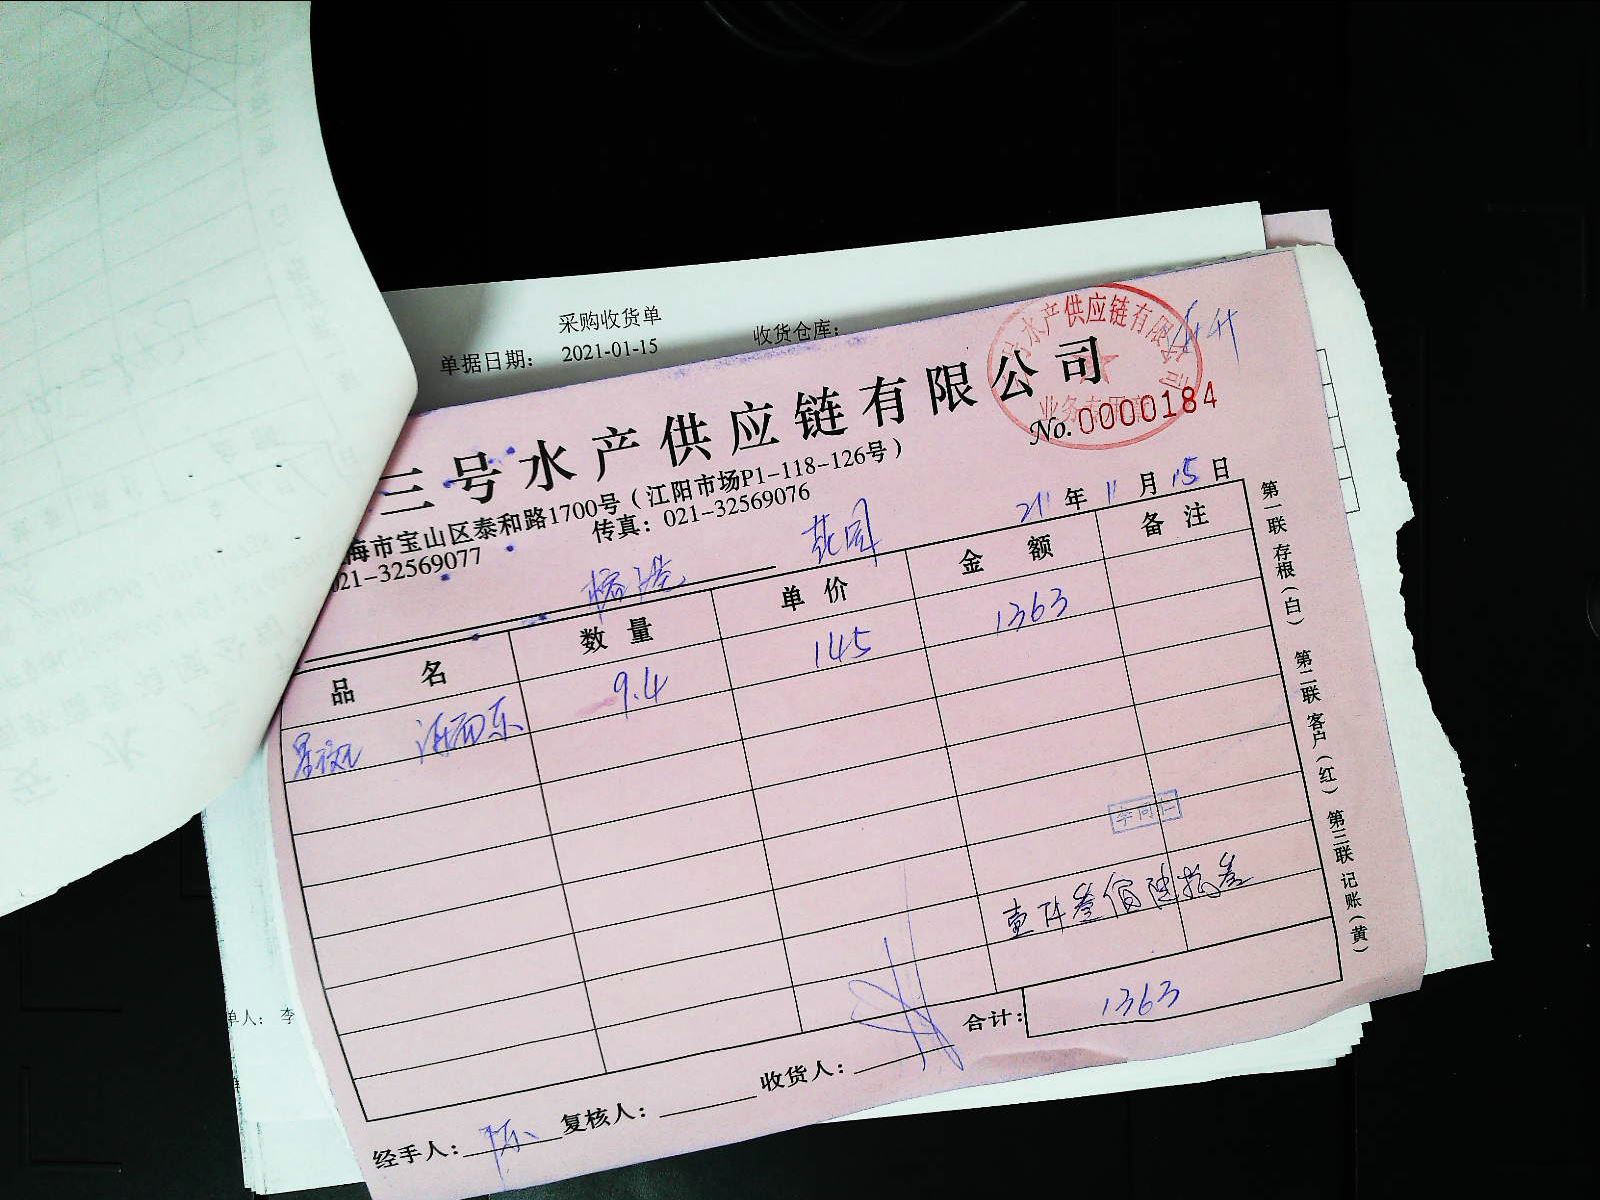 采购收货单
单据日期: 2021-01-15
收货仓库:
水产供应链有限公司
业务专用章
三号水产供应链有限公司
No. 0000184
海市宝山区泰和路1700号（江阳市场P1-118-126号）
021-32569077 传真: 021-32569076
年 11 月 15 日
花园
品名 数量 单价 金额 备注
9.4 145 1363
李同仁
壹仟叁佰陆拾叁
合计: 1363
经手人: 陈 复核人: 收货人:
第一联存根(白) 第二联客户(红) 第三联记账(黄)
单人: 李